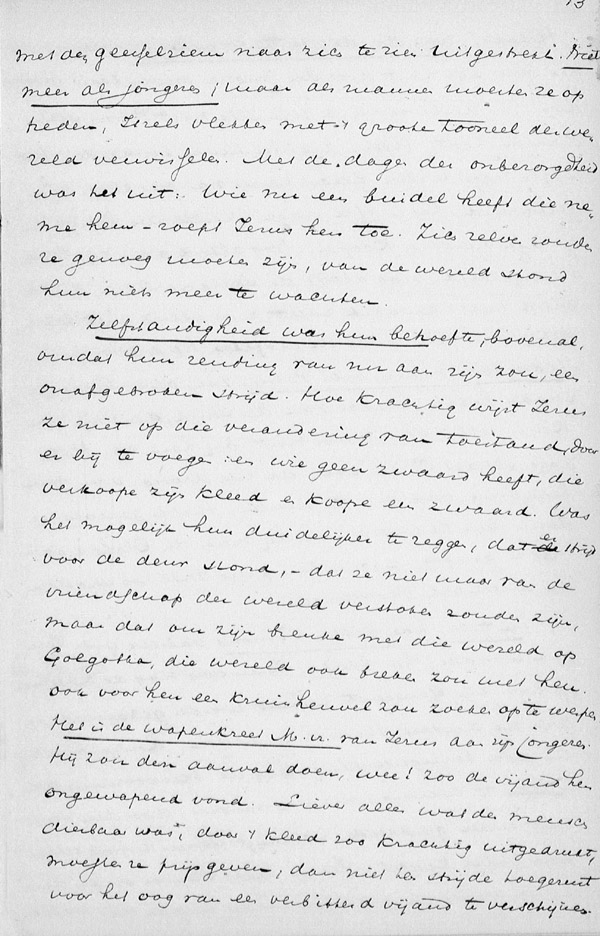 13
met den geeselriem naar zich te zien uitgestrekt. Niet
meer als jongeren, maar als mannen moesten ze op
treden, Isrels vlekken met 't groote tooneel der we-
reld verwisselen. Met de dagen der onbezorgdheid
was het uit: Wie nu een buidel heeft die ne-
me hem - roept Jezus hen toe. Zich zelven zouden
ze genoeg moeten zijn, van de wereld stond
hun niets meer te wachten.
Zelfstandigheid was hun behoefte, bovenal,
omdat hun zending van nu aan zijn zou, een
onafgebroken strijd. Hoe krachtig wijst Jezus
ze niet op die verandering van toestand, door
er bij te voegen: en wie geen zwaard heeft, die
verkoope zijn kleed en koope een zwaard. Was
het mogelijk hun duidelijker te zeggen, dat er strijd
voor de deur stond, - dat ze niet maar van de
vriendschap der wereld verstoken zouden zijn,
maar dat om zijn breuke met die wereld op
Golgotha, die wereld ook breken zou met hen.
ook voor hen een kruisheuvel zou zoeken op te werpen
Het is de wapenkreet M. vr. van Jezus aan zijn jongeren.
Hij zou den aanval doen, wee! zoo de vijand hen
ongewapend vond. Liever alles wat den mensch
dierbaar was, door 't kleed zoo krachtig uitgedrukt,
moesten ze prijsgeven, dan niet ten strijde toegerust
voor het oog van een verbitterd vijand te verschijnen.